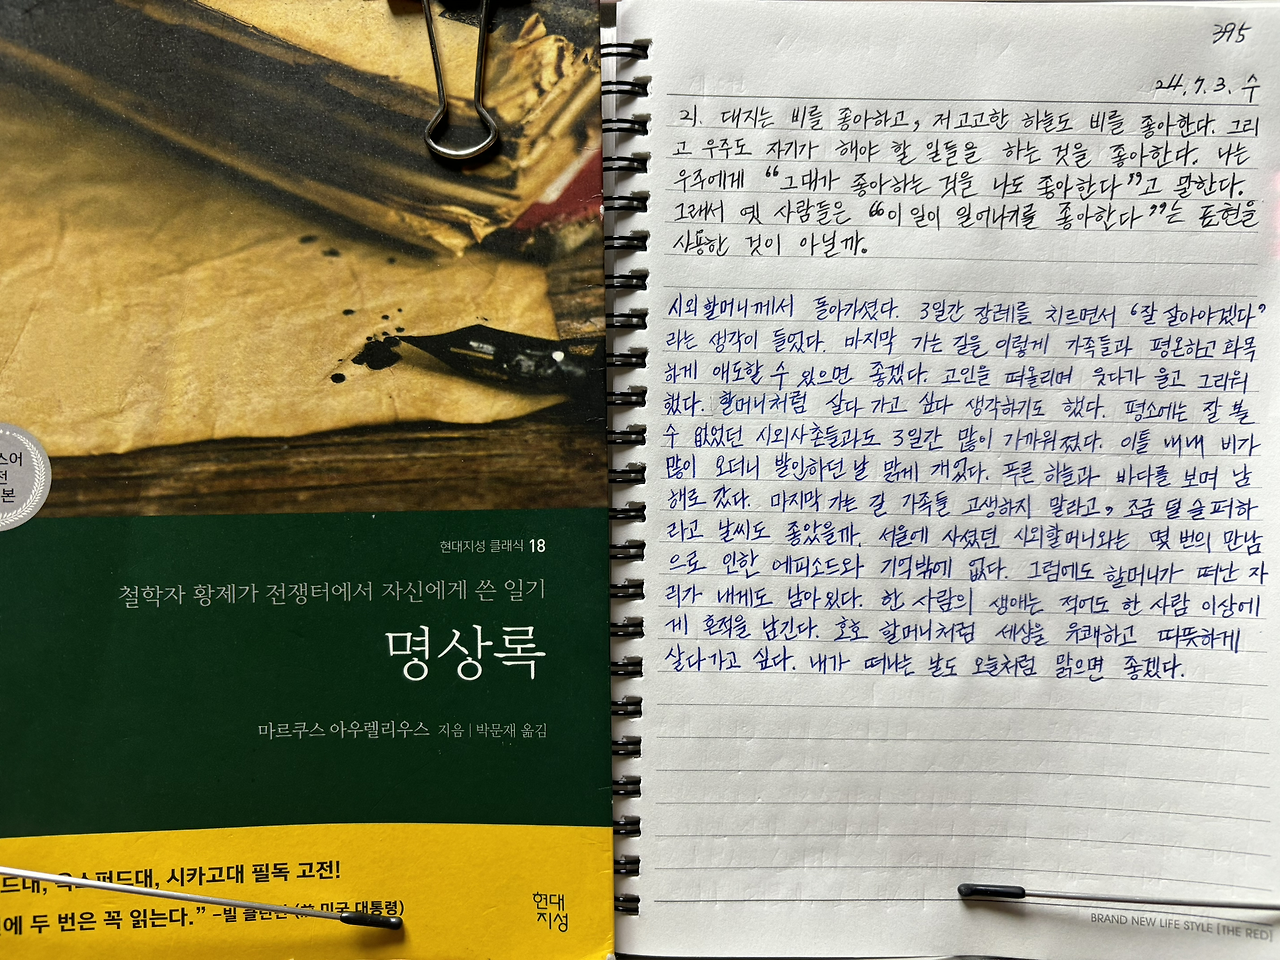 스어
전
본
현대지성 클래식 18
철학자 황제가 전쟁터에서 자신에게 쓴 일기
명상록
마르쿠스 아우렐리우스 지음 | 박문재 옮김
드대, 옥스퍼드대, 시카고대 필독 고전!
에 두 번은 꼭 읽는다.” –빌 클린턴 (前 미국 대통령)
현대
지성
395
24. 7. 3. 수
21. 대지는 비를 좋아하고, 저 고고한 하늘도 비를 좋아한다. 그리
고 우주도 자기가 해야 할 일들을 하는 것을 좋아한다. 나는
우주에게 “그대가 좋아하는 것을 나도 좋아한다”고 말한다.
그래서 옛 사람들은 “이 일이 일어나기를 좋아한다”는 표현을
사용한 것이 아닐까.
시외할머니께서 돌아가셨다. 3일간 장례를 치르면서 “잘 살아야겠다”
라는 생각이 들었다. 마지막 가는 길을 이렇게 가족들과 평온하고 화목
하게 애도할 수 있으면 좋겠다. 고인을 떠올리며 웃다가 울고 그리워
했다. 할머니처럼 살다 가고 싶다 생각하기도 했다. 평소에는 잘 볼
수 없었던 시외사촌들과도 3일간 많이 가까워졌다. 이틀 내내 비가
많이 오더니 발인하던 날 맑게 개었다. 푸른 하늘과 바다를 보며 남
해로 갔다. 마지막 가는 길 가족들 고생하지 말라고, 조금 덜 슬퍼하
라고 날씨도 좋았을까. 서울에 사셨던 시외할머니와는 몇 번의 만남
으로 인한 에피소드와 기억밖에 없다. 그럼에도 할머니가 떠난 자
리가 내게도 남아있다. 한 사람의 생애는 적어도 한 사람 이상에
게 흔적을 남긴다. 호호 할머니처럼 세상을 유쾌하고 따뜻하게
살다가고 싶다. 내가 떠나는 날도 오늘처럼 맑으면 좋겠다.
BRAND NEW LIFE STYLE [THE RED]